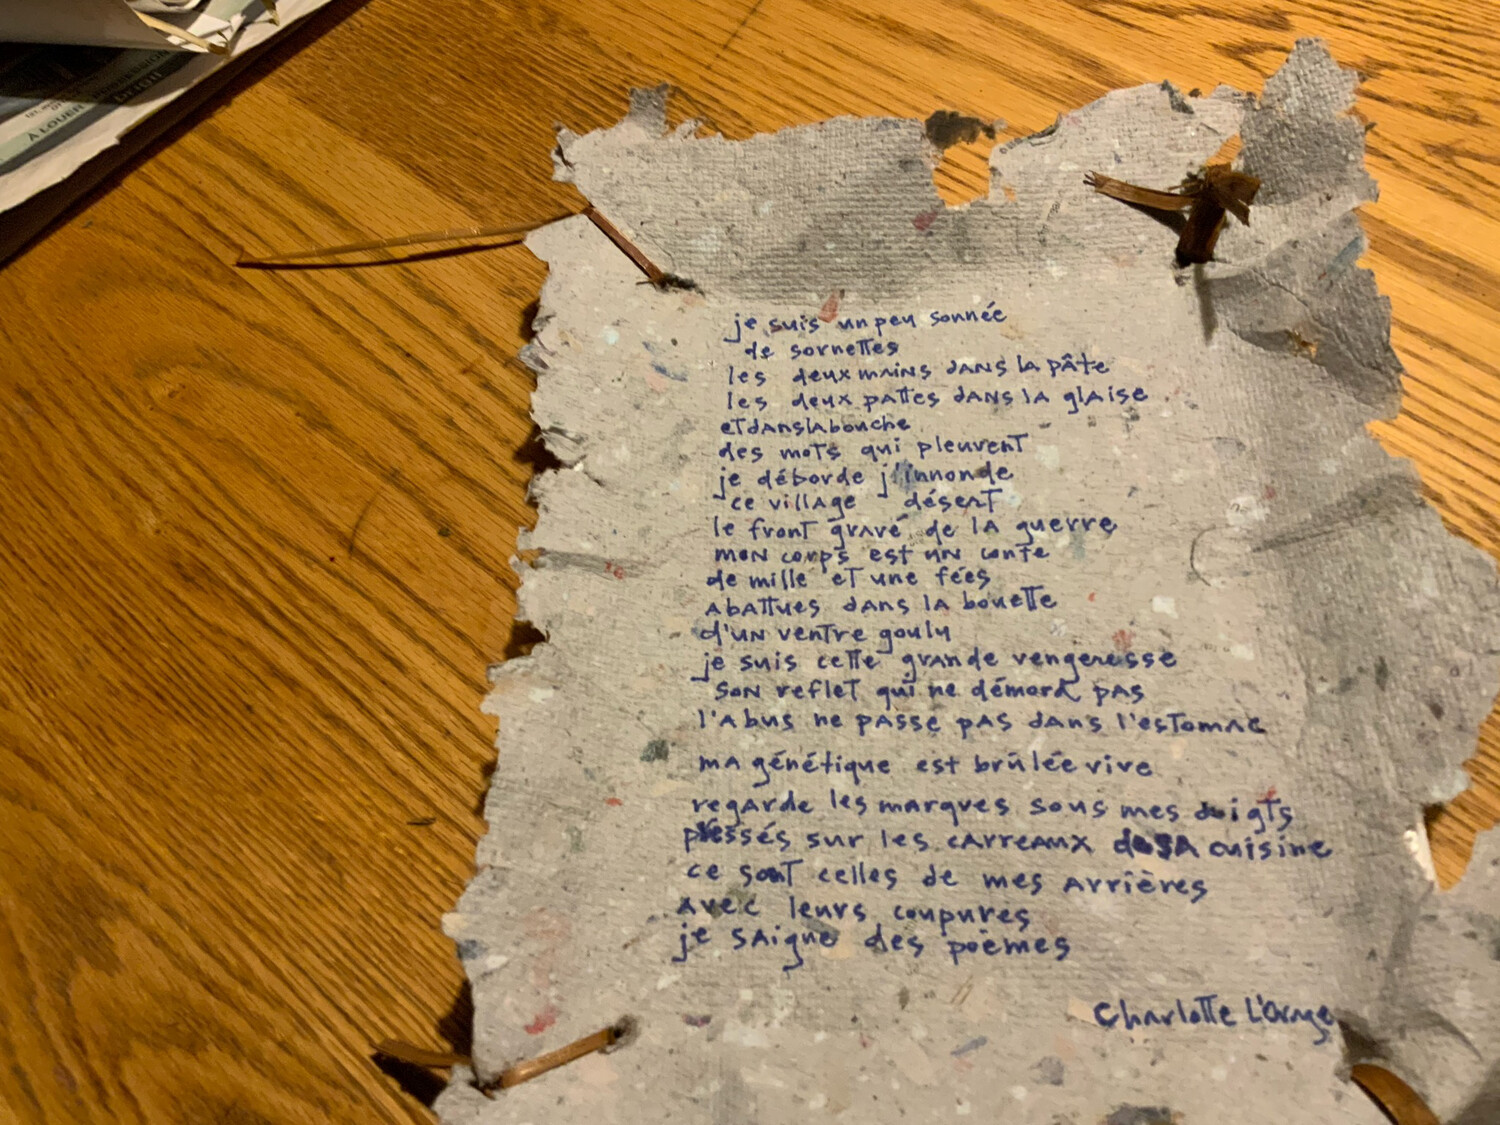 À LOUER
je suis un peu sonnée
de sornettes
les deux mains dans la pâte
les deux pattes dans la glaise
et dans la bouche
des mots qui pleuvent
je déborde j'innonde
ce village désert
le front gravé de la guerre
mon corps est un conte
de mille et une fées
abattues dans la bouette
d'un ventre goulu
je suis cette grande vengeresse
son reflet qui ne démord pas
l'abus ne passe pas dans l'estomac
ma génétique est brûlée vive
regarde les marques sous mes doigts
pressés sur les carreaux de sa cuisine
ce sont celles de mes arrières
avec leurs coupures
je saigne des poèmes
Charlotte L'Orage